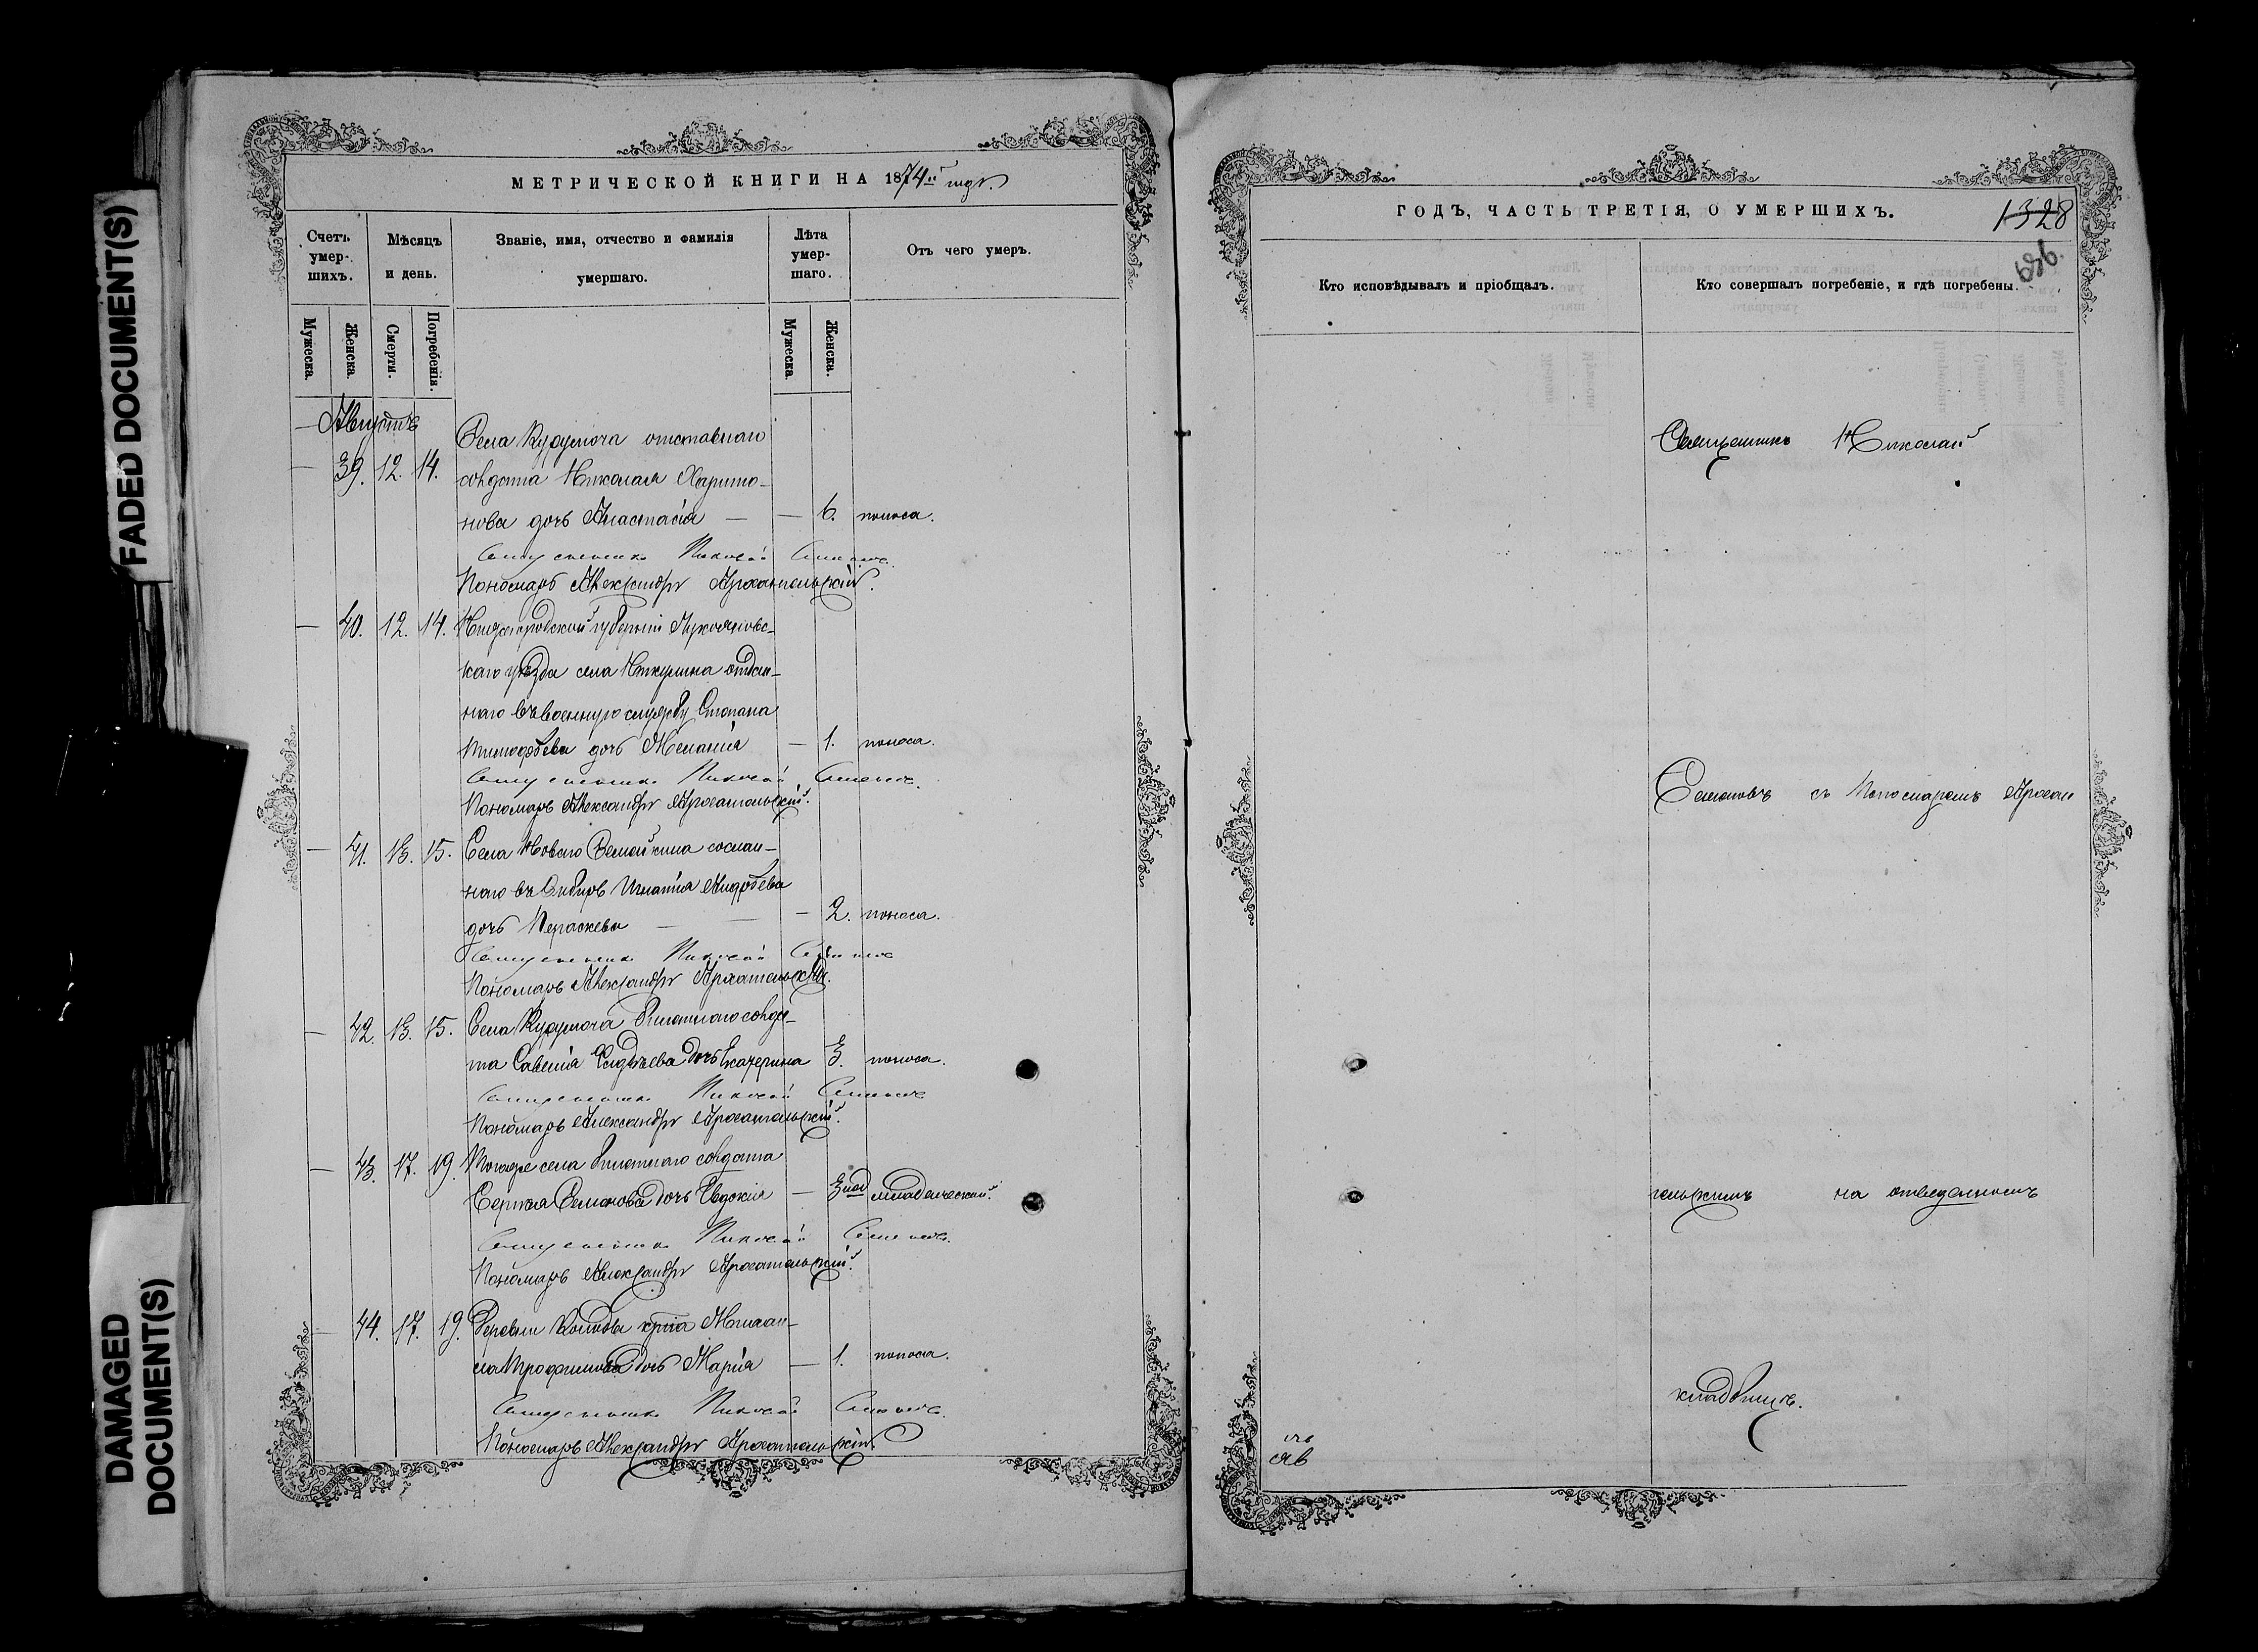 FADED DOCUMENT(S)
DAMAGED
DOCUMENT(S)
МЕТРИЧЕСКОЙ КНИГИ НА 1874й годъ.
Счетъ умер-шихъ.
Мѣсяцъ и день.
Званіе, имя, отчество и фамилія умершаго.
Лѣта умер-шаго.
Отъ чего умеръ.
Мужеска.
Женска.
Смерти.
Погребенія.
Мужеска.
Женска.
Августъ
Села Курумоча отставнаго
— 39. 12. 14. солдата Николая Харито-
нова дочь Анастасія — — 6. поноса.
Священникъ Николай Семеновъ.
Пономарь Александръ Архангельскій.
— 40. 12. 14. Нижегородской губерніи Лукояновс-
каго уѣзда села Никулина отдан-
наго въ военную службу Степана
Тимофѣева дочь Меланія — 1. поноса.
Священникъ Николай Семеновъ.
Пономарь Александръ Архангельскій.
— 41. 13. 15. Села Новаго Семейкина сослан-
наго въ Сибирь Игнатія Андрѣева
дочь Параскева — — — 2. поноса.
Священникъ Николай Семеновъ
Пономарь Александръ Архангельскій.
— 42. 13. 15. Села Курумоча билетнаго солда-
та Савелія дочь Екатерина 3. поноса.
Священникъ Николай Семеновъ
Пономарь Александръ Архангельскій.
— 43. 17. 19. Тогоже села билетнаго солдата
Сергея Семенова дочь Евдокія — 3 нед младенческой.
Священникъ Николай Семеновъ.
Пономарь Александръ Архангельскій.
— 44. 17. 19. Деревни кр͠на
Трофимова дочь Марія — 1. поноса.
Священникъ Николай Семеновъ.
Пономарь Александръ Архангельскій.
ГОДЪ, ЧАСТЬ ТРЕТІЯ, О УМЕРШИХЪ.
1328
986.
Кто исповѣдывалъ и пріобщалъ.
Кто совершалъ погребеніе, и гдѣ погребены.
Священникъ Николай
Семеновъ съ Пономаремъ Архан
гельскимъ на отведенномъ
кладбищѣ.